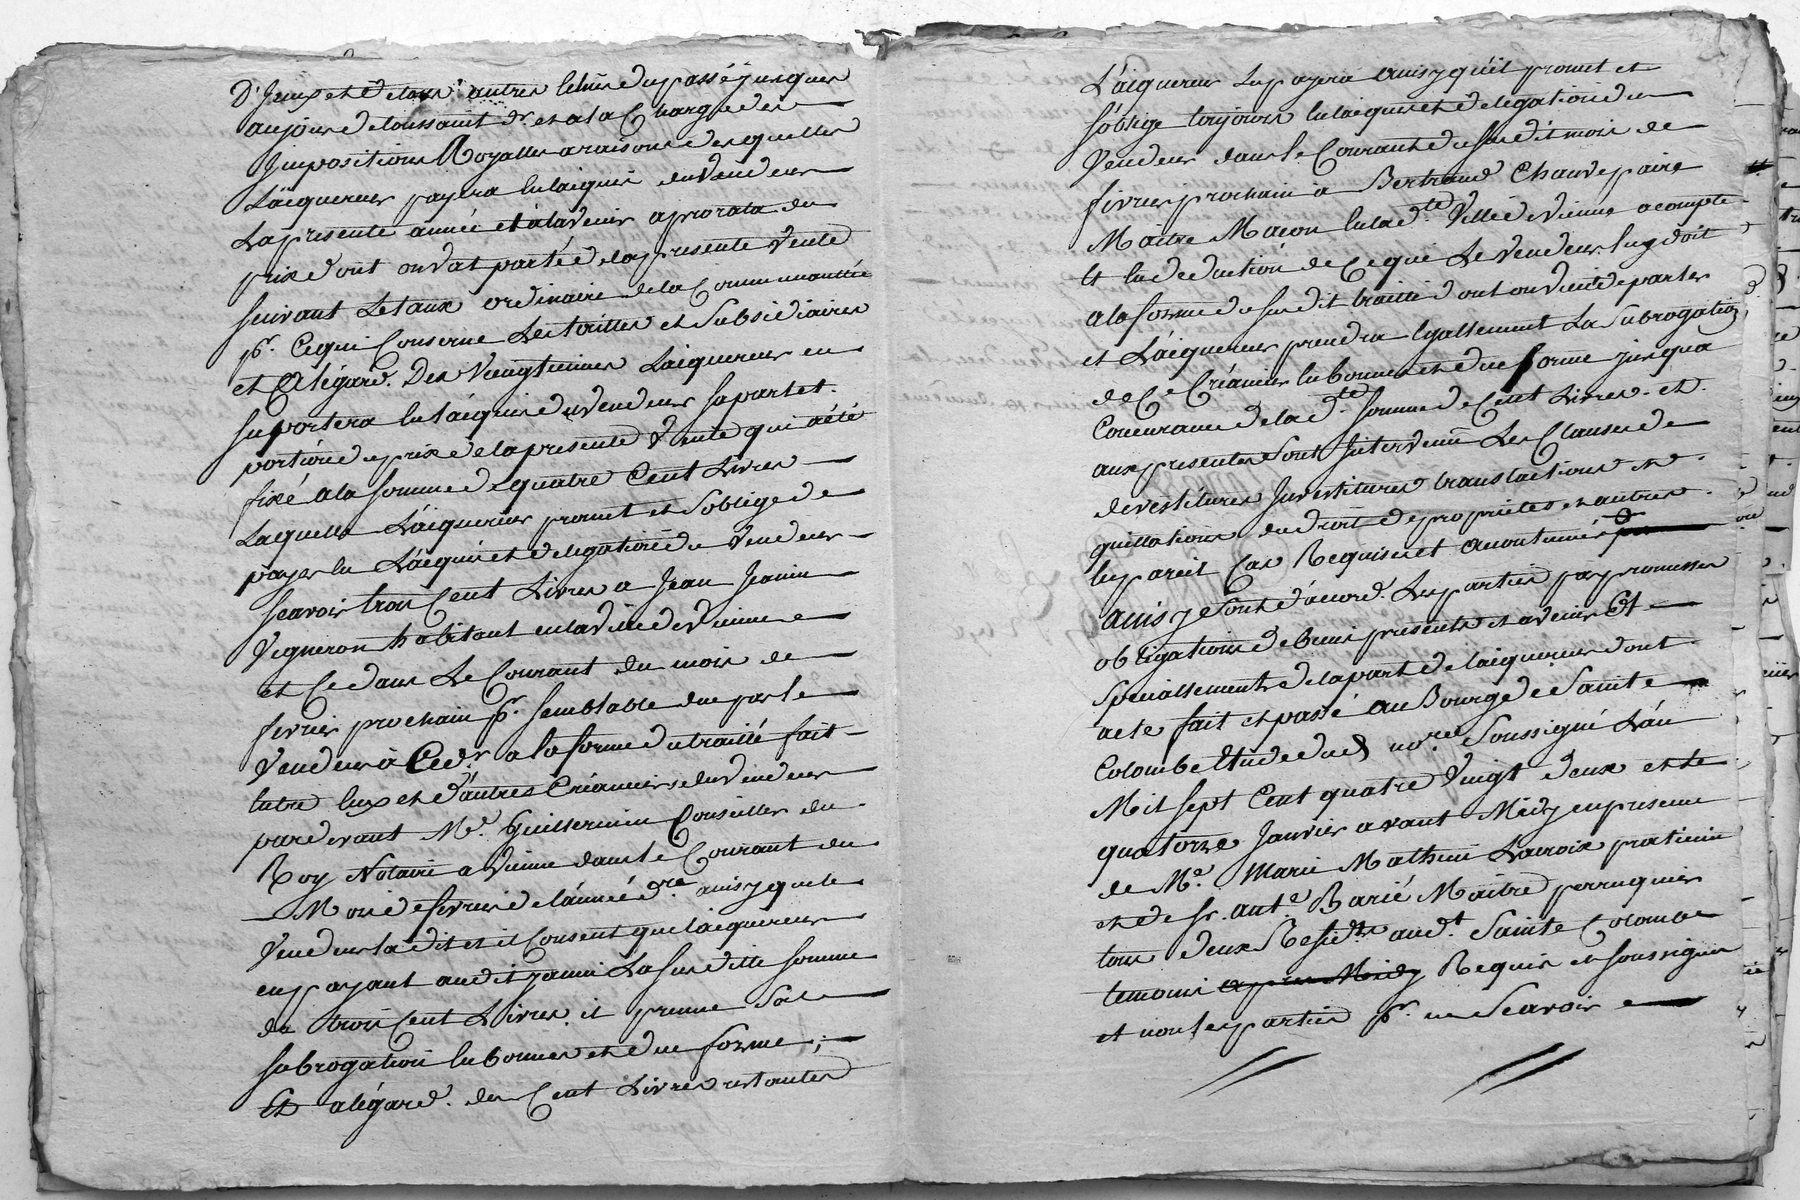 D'Jceux et de tous autres biens du passé jusques
aujour de toussaint dr. et a la Charge des
Jmpositions Royalles a raison des quelles
L'aiquereur payera lulaiquis du Vendeur
La presente année et à lavenir a prorata du
prix dont on vat parté de la presente Vente
suivant Le taux ordinaire de la Communauttée
pr. Ce qui Conserne Les tailles et Subsidiaires
et a l'égard. Des Vingtiemes L'aiquereur en
suportera lu l'aiquis du Vendeur sa part et.
portion de prix de la presente Vente qui a été
fixé a la somme de quatre Cent Livres
Laquelle L'aiquereur promet et s'oblige de
payer lu L'aiquis et delegation du Vendeur
scavoir trois Cent Livres a Jean Jeanin
Vigneron habitant en la Ville de Vienne
et Ce dans Le Courant du mois de
fevrier prochain pr. semblable due par le
Vendeur à Ced. a la forme du traitté fait
entre lux et d'autres Créanciers du Vendeur
pardevant Me. Guillermin Conseiller du
Roy Notaire a Vienne dans le Courant du
Mois de fevrier de l'année dre. ainsy que le
Vendeur la dit et il Consent que l'aiquereur
en payant audit Janin La susditte somme
de trois Cent Livres il prenne Sa
subrogation en bonne et due forme;
Et a l'égard. des Cent Livres restantes
L'aiquereur Les payera ainsy qu'il promet et
s'oblige toujours lu laiquis et delegation du
Vendeur dans le Courant du susdit mois de
fevrier prochain à Bertrand Chauvepaire
Maitre Macon en lade. Ville de Vienne a compte
Et en deduction de Ce que Le Vendeur luy doit
a la forme du susdit traitté dont on vient de parler
et L'aiquereur prendra Egallement La Subrogation
de Ce Créancier en bonne et due forme jusqu'a
Concurance de lade. somme de Cent Livres. et
aux presentes sont Jntervenu Les Clauses de
devestitures Jnvestitures translations et
quillations du droit de proprietés et autres
en pareil Cas Requises et acoutumés
ainsy Convenu d'acord. Les parties par promesses
obligations de biens presents et avenir Et
speciallement de la part de laiquereur dont
acte fait et passé au Bourg de Sainte
Colombe Etude du nore. Soussigné L'an
Mil sept Cent quatre Vingt deux et le
quatorze Janvier avant Midy en presence
de Me. Marie Mathieu Lacroix praticien
et de sr. ante. Barié Maitre perruquier
tous deux Residts. aud. Sainte Colombe
temoins apres Midy Requis et soussignés
et non les parties pr. ne Scavoir